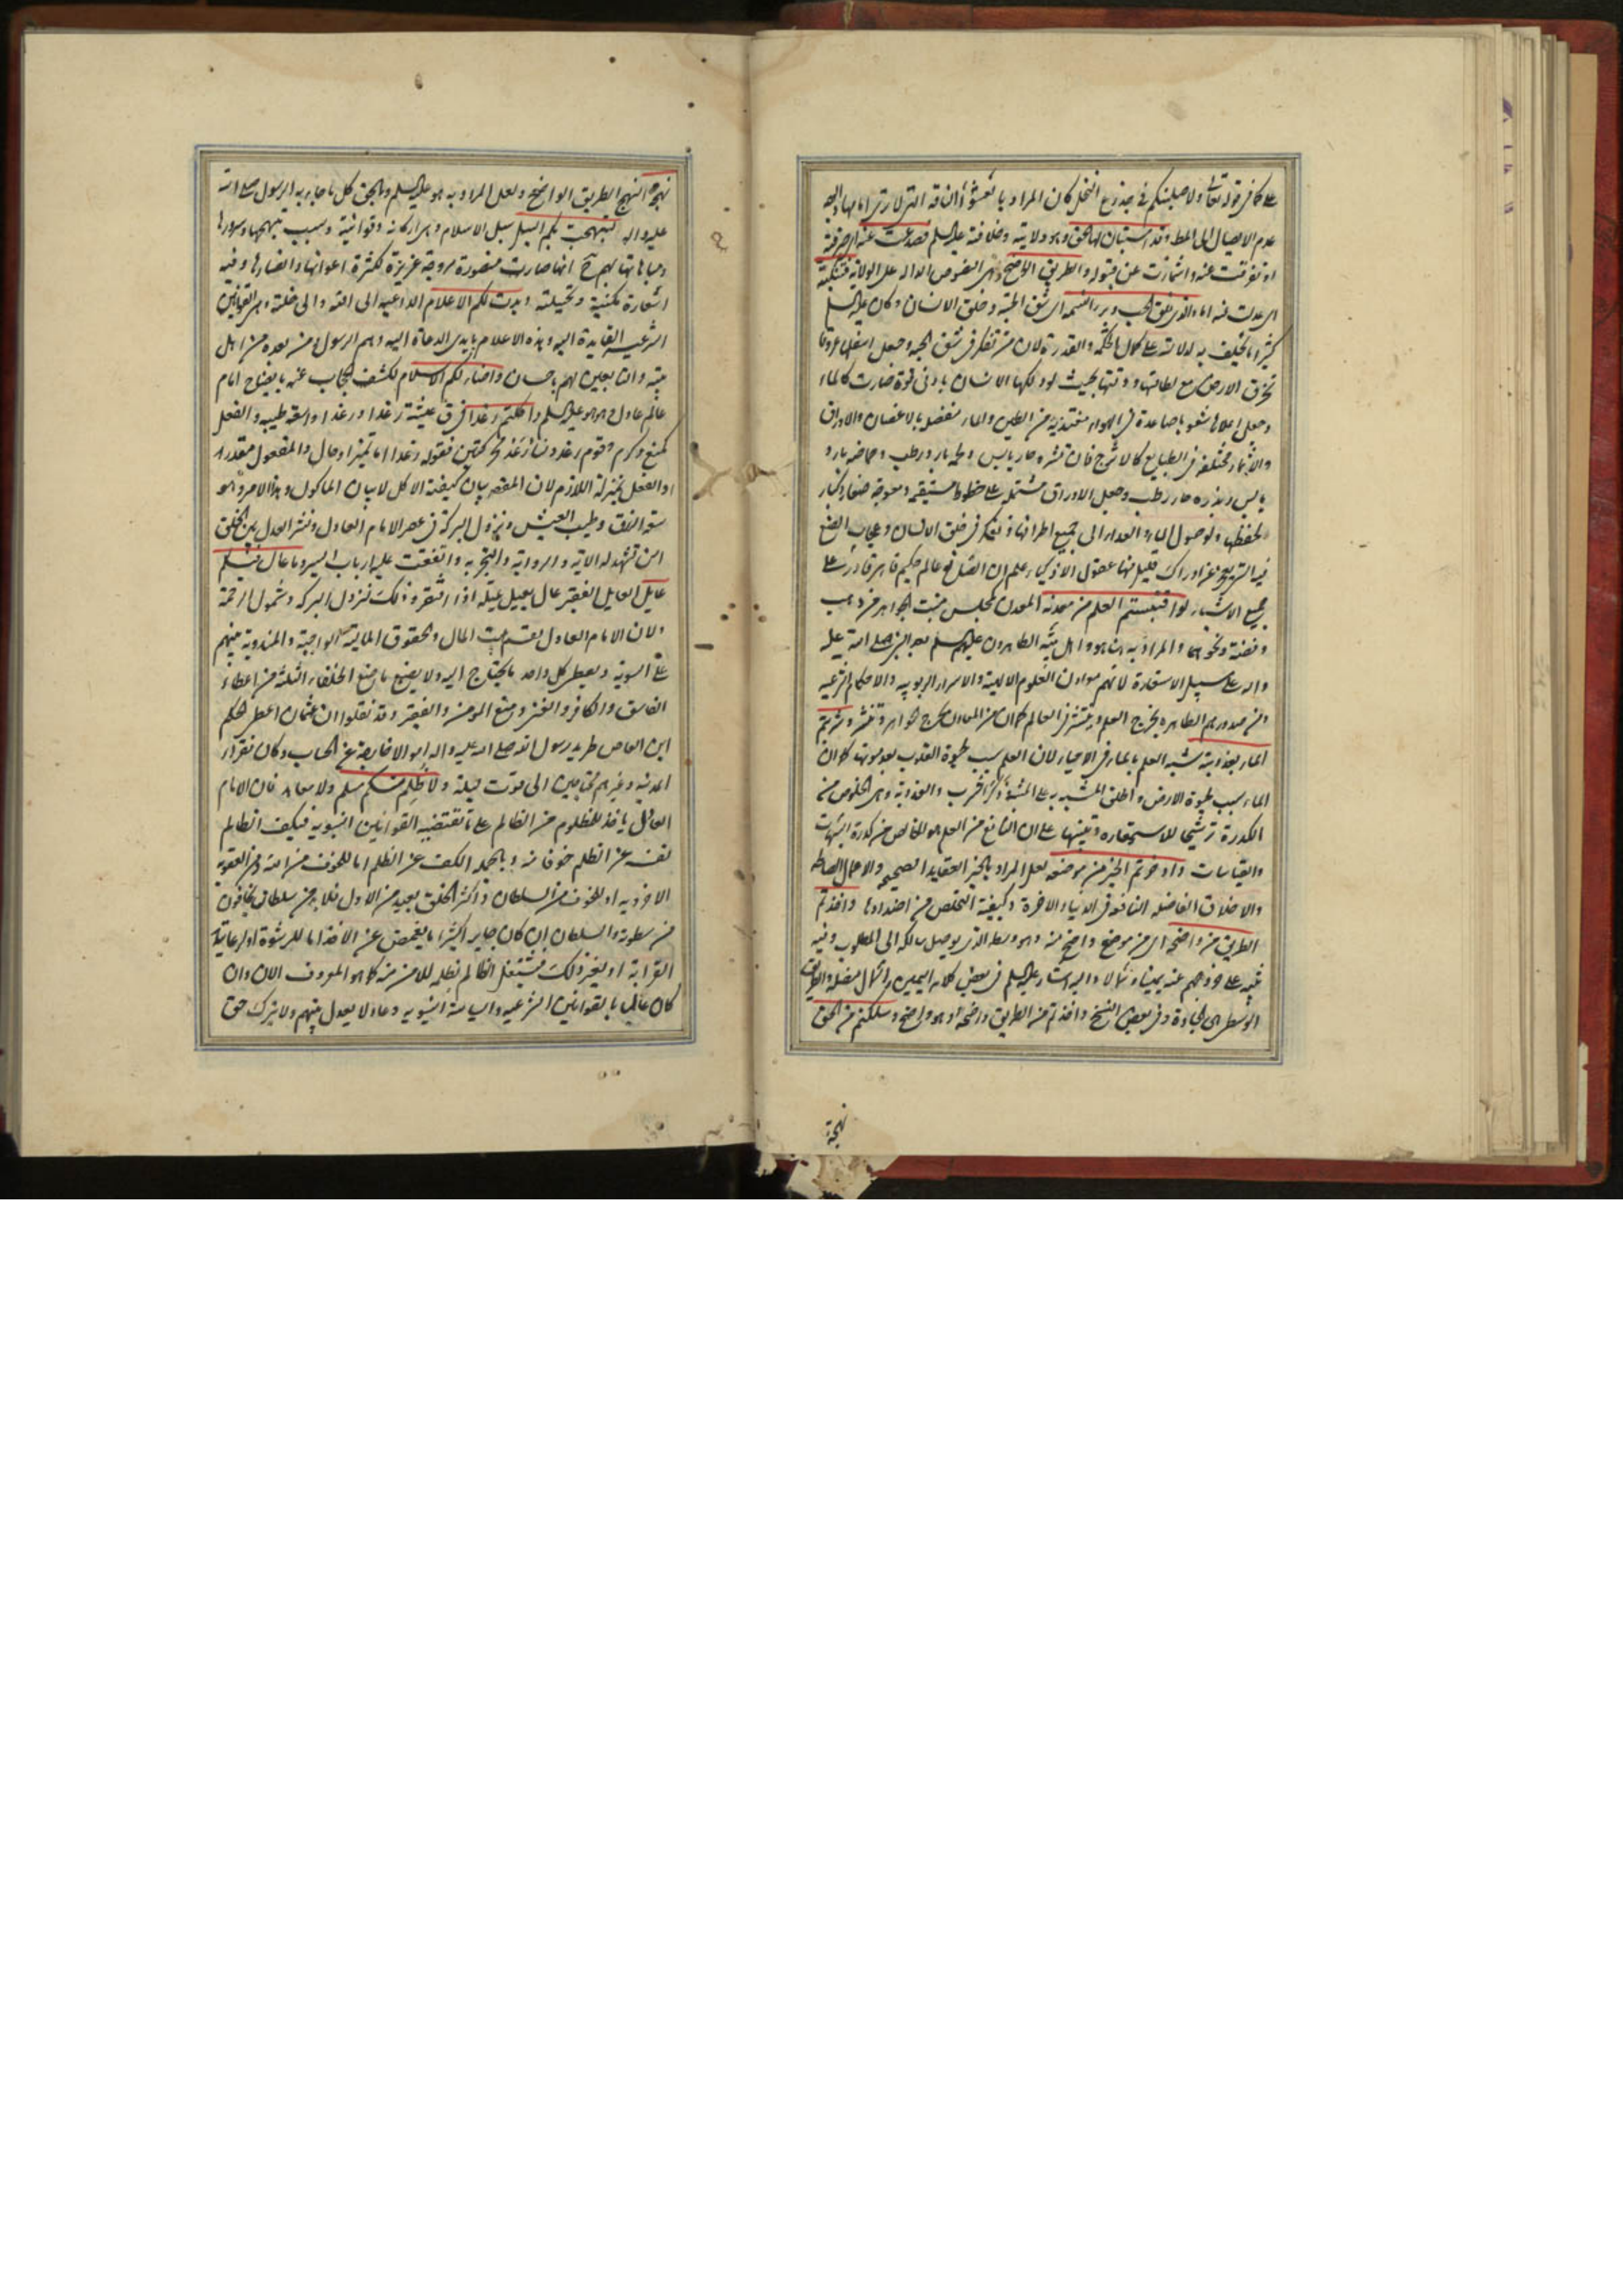 على كما فى قوله تعالى ولاصلبنكم فى جذوع النخل كان المراد بالعشواء الناقة التى لا ترى امامها والوجه
عدم الايصال الى المطلوب وقد استبان لها الحق وهو ولايته وخلافته عليه السلم فصدعت عنه اى صرفته
او تفرقت عنه واشمازت عن قبوله والطريق الواضح وهى النصوص الداله على الولاية فتنكبته
اى عدلت منه اما والذى فلق الحب وبرء النسمه اى شق الحبة وخلق الانسان وكان عليه السلم
كثيرا ما يحلف به لدلالته على كمال الحكمة والقدرة لان من تفكر فى شق الحبه وجعل اسفلها عروقا
تخرق الارض مع لطافتها ودقتها بحيث لو دلكها الانسان بادنى قوة صارت كالماء
وجعل اعلاها شعوبا صاعدة فى الهواء مغتذية من الطين والماء منفصل بالاغصان والاوراق
والاثمار مختلفة فى الطبايع كالاترج فان قشره حار يابس ولحمه بارد رطب وحماضه بارد
يابس وبذره حار رطب وجعل الاوراق مشتمله على خطوط مستقيمه ومعوجة صغار وكبار
لحفظها ولوصول الماء والغداء الى جميع اطرافها وتفكر فى خلق الانسان وعجايب الصنع
فيه التى يعجز عن ادراك قليل منها عقول الاذكياء علم ان الصانع عالم حكيم قاهر قادر على
جميع الاشياء لو اقتبستم العلم من معدنه المعدن كمجلس منبت الجواهر من ذهب
وفضة ونحوهما والمراد به هنا هو واهل بيته الطاهرون عليهم السلم بعد النبى صلى الله عليه
واله على سبيل الاستعارة لانهم معادن العلوم الالهية والاسرار الربوبيه والاحكام الشرعيه
ومن صدورهم الطاهره يخرج العلم وينتشر فى العالم كما ان من المعادن يخرج الجواهر وتنتشر وشربتم
الماء بعذوبته شبه العلم بالماء فى الاحياء لان العلم سبب لحيوة القلوب بعد موتها كما ان
الماء سبب لحيوة الارض واطلق المشبه به على المشبه وذكر الشرب والعذوبة وهى الخلوص من
الكدورة ترشيحا للاستعاره وتنبيها على ان النافع من العلم هو الخالص من كدورة الشبهات
والقياسات وادخرتم الخير من موضعه لعل المراد بالخير العقايد الصحيحه والاعمال الصالحه
والاخلاق الفاضله النافعه فى الدنيا والاخرة وكيفية التخلص من اضدادها واخذتم
الطريق من واضحه اى من موضع واضح منه وهو وسطه الذى يوصل سالكه الى المطلوب وفيه
تنبيه على خروجهم عنه يمينا وشمالا واليه اشار عليه السلم فى بعض كلامه اليمين والشمال مضله والطريق
الوسطى هى الجادة وفى بعض النسخ واخذتم من الطريق واضحه او هو واضح وسلكتم من الحق
نهجه
نهجه النهج الطريق الواضح ولعل المراد به هو عليه السلم وبالحق كل ما جاء به الرسول صلى الله
عليه واله لنهجت بكم السبل سبل الاسلام وهى اركانه وقوانينه وسبب بهجتها وسرورها
ومباهاتها بهم ح انها صارت منصورة مروجة عزيزة لكثرة اعوانها وانصارها وفيه
استعارة مكنية وتخييلية وبدت لكم الاعلام الداعيه الى الله والى خلقه وهى القوانين
الشرعيه القايدة اليه وهذه الاعلام بايدى الدعاة اليه وهم الرسول ومن بعده من اهل
بيته والتابعين لهم باحسان واضاء لكم الاسلام لكشف الحجاب عنه بايضاح امام
عالم عادل وهو هو عليه السلم واكلتم رغدا فى ق عيشة رغدا ورغدا واسعه طيبه والفعل
كمنع وكرم وقوم رغد ونساء رغد محركتين فقوله رغدا اما تميز او حال والمفعول مقدر
او الفعل بمنزلة اللازم لان المقصود بيان كيفية الاكل لا بيان الماكول وهذا الامر وهو
سعة الرزق وطيب العيش ونزول البركة فى عصر الامام العادل ونشر العدل بين الخلق
امر تشهد له الاية والرواية والتجربه واتفقت عليه ارباب السير وما عال فيكم
عايل العايل الفقير عال يعيل عيلة اذا افتقر وذلك لنزول البركه وشمول الرحمة
ولان الامام العادل يقسم بيت المال والحقوق المالية الواجبة والمندوبة بينهم
على السوية ويعطى كل واحد ما يحتاج اليه ولا يصنع ما صنع الخلفاء الثلثه من اعطاء
الفاسق والكافر والغنى ومنع المومن والفقير وقد نقلوا ان عثمان اعطى الحكم
ابن العاص طريد رسول الله صلى الله عليه واله اموالا خارجة عن الحساب وكان فقراء
المدينة وغيرهم محتاجين الى قوت ليلة ولا ظلم منكم مسلم ولا معاهد فان الامام
العادل ياخذ للمظلوم من الظالم على ما تقتضيه القوانين النبويه فيكف الظالم
نفسه عن الظلم خوفا منه وبالجمله الكف عن الظلم اما للخوف من الله ومن العقوبه
الاخرويه او للخوف من السلطان واكثر الخلق بعيد من الاول فلا بد من سلطان يخافون
من سطوته والسلطان ان كان جايرا كثيرا ما يغمض عن الاخذ اما للرشوة او لرعاية
القرابة او لغير ذلك فيشتغل الظالم بظلمه للامن منه كما هو المعروف الان وان
كان عالما بالقوانين الشرعيه والسياسة النبويه وعادلا يعدل بينهم ولا يترك حق